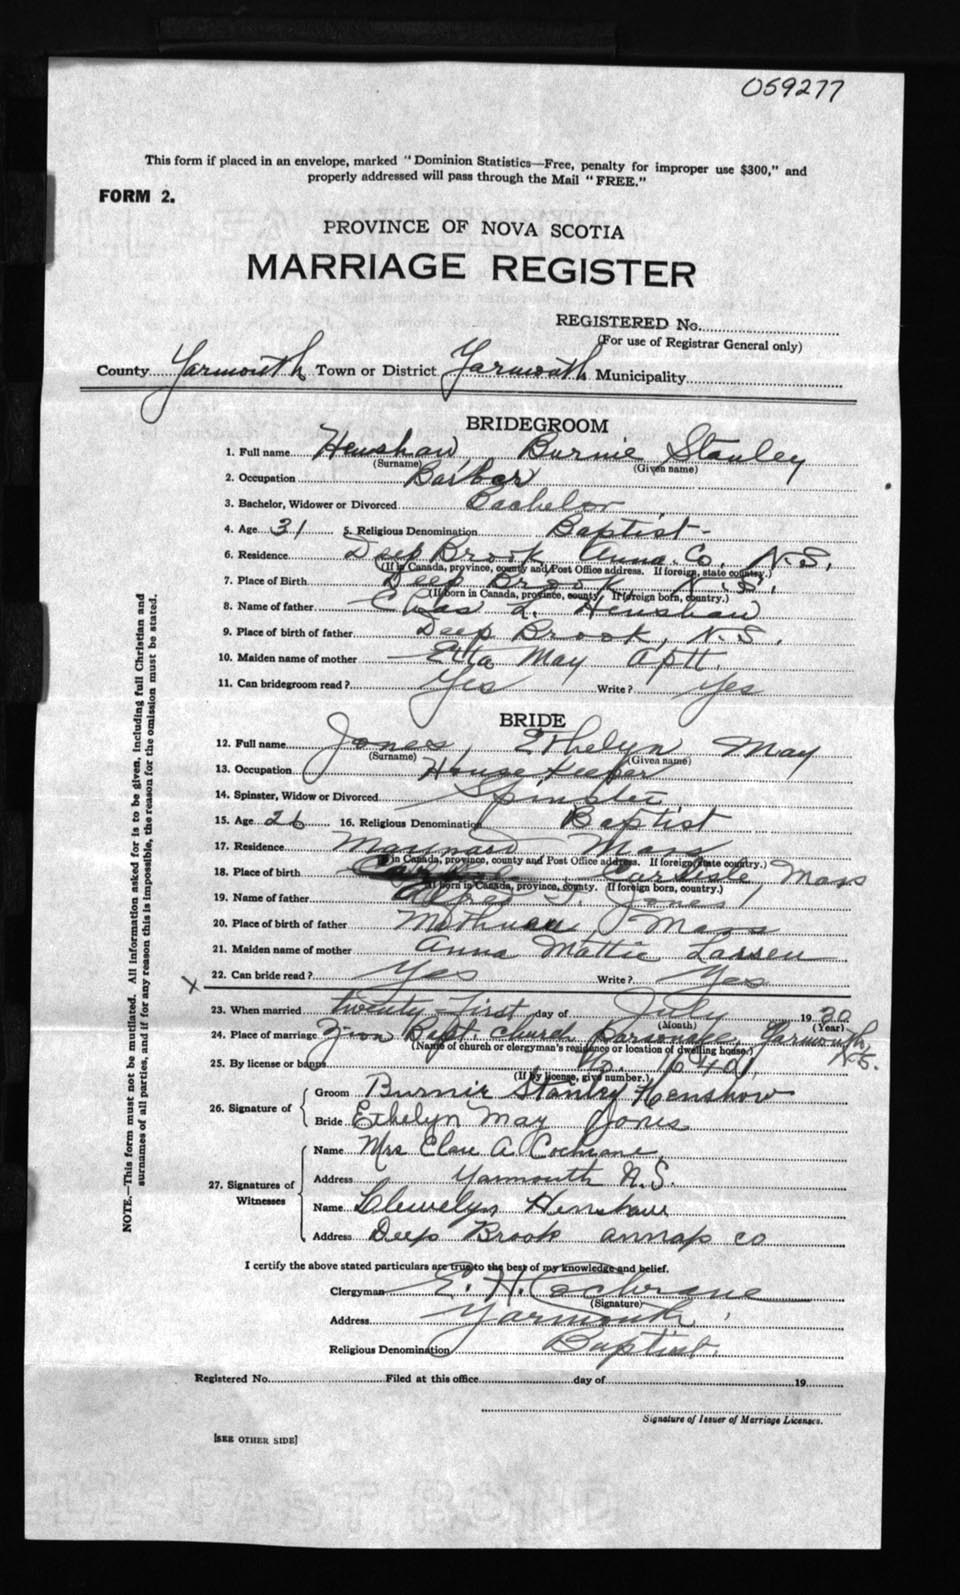 059277
This form if placed in an envelope, marked "Dominion Statistics—Free, penalty for improper use $300," and
properly addressed will pass through the Mail "FREE."
FORM 2.
PROVINCE OF NOVA SCOTIA
MARRIAGE REGISTER
REGISTERED No.
(For use of Registrar General only)
County Yarmouth Town or District Yarmouth Municipality
BRIDEGROOM
1. Full name Henshaw, Burnie Stanley
(Surname) (Given name)
2. Occupation Barber
3. Bachelor, Widower or Divorced Bachelor
4. Age 31 5. Religious Denomination Baptist
6. Residence Deep Brook, Anna. Co. N.S.
(If in Canada, province, county and Post Office address. If foreign, state country.)
7. Place of Birth Deep Brook N.S.
(If born in Canada, province, county. If foreign born, country.)
8. Name of father Chas L. Henshaw
9. Place of birth of father Deep Brook, N.S.
10. Maiden name of mother Etta May
11. Can bridegroom read? Yes Write? Yes
BRIDE
12. Full name Jones, Ethelyn May
(Surname) (Given name)
13. Occupation House Keeper
14. Spinster, Widow or Divorced Spinster
15. Age 26 16. Religious Denomination Baptist
17. Residence Maynard Mass
(If in Canada, province, county and Post Office address. If foreign state country.)
18. Place of birth Carlisle, Mass
(If born in Canada, province, county. If foreign born, country.)
19. Name of father Jones
20. Place of birth of father Methuen, Mass
21. Maiden name of mother Anna Mattie Larsen
22. Can bride read? Yes Write? Yes
X
23. When married twenty-first day of July 1930
(Month) (Year)
24. Place of marriage Zion Bapt. Church Parsonage, Yarmouth, N.S.
(Name of church or clergyman's residence or location of dwelling house.)
25. By license or banns No. 6401
(If by license, give number.)
26. Signature of Groom Burnie Stanley Henshaw
Bride Ethelyn May Jones
27. Signatures of Witnesses Name Mrs A. Cochrane
Address Yarmouth N.S.
Name Llewelyn Henshaw
Address Deep Brook annap co
I certify the above stated particulars are true to the best of my knowledge and belief.
Clergyman E. H. Cochrane
(Signature)
Address Yarmouth
Religious Denomination Baptist.
Registered No. Filed at this office day of 19
Signature of Issuer of Marriage Licenses.
[SEE OTHER SIDE]
NOTE.—This form must not be mutilated. All information asked for is to be given, including full Christian and
surnames of all parties, and if for any reason this is impossible, the reason for the omission must be stated.